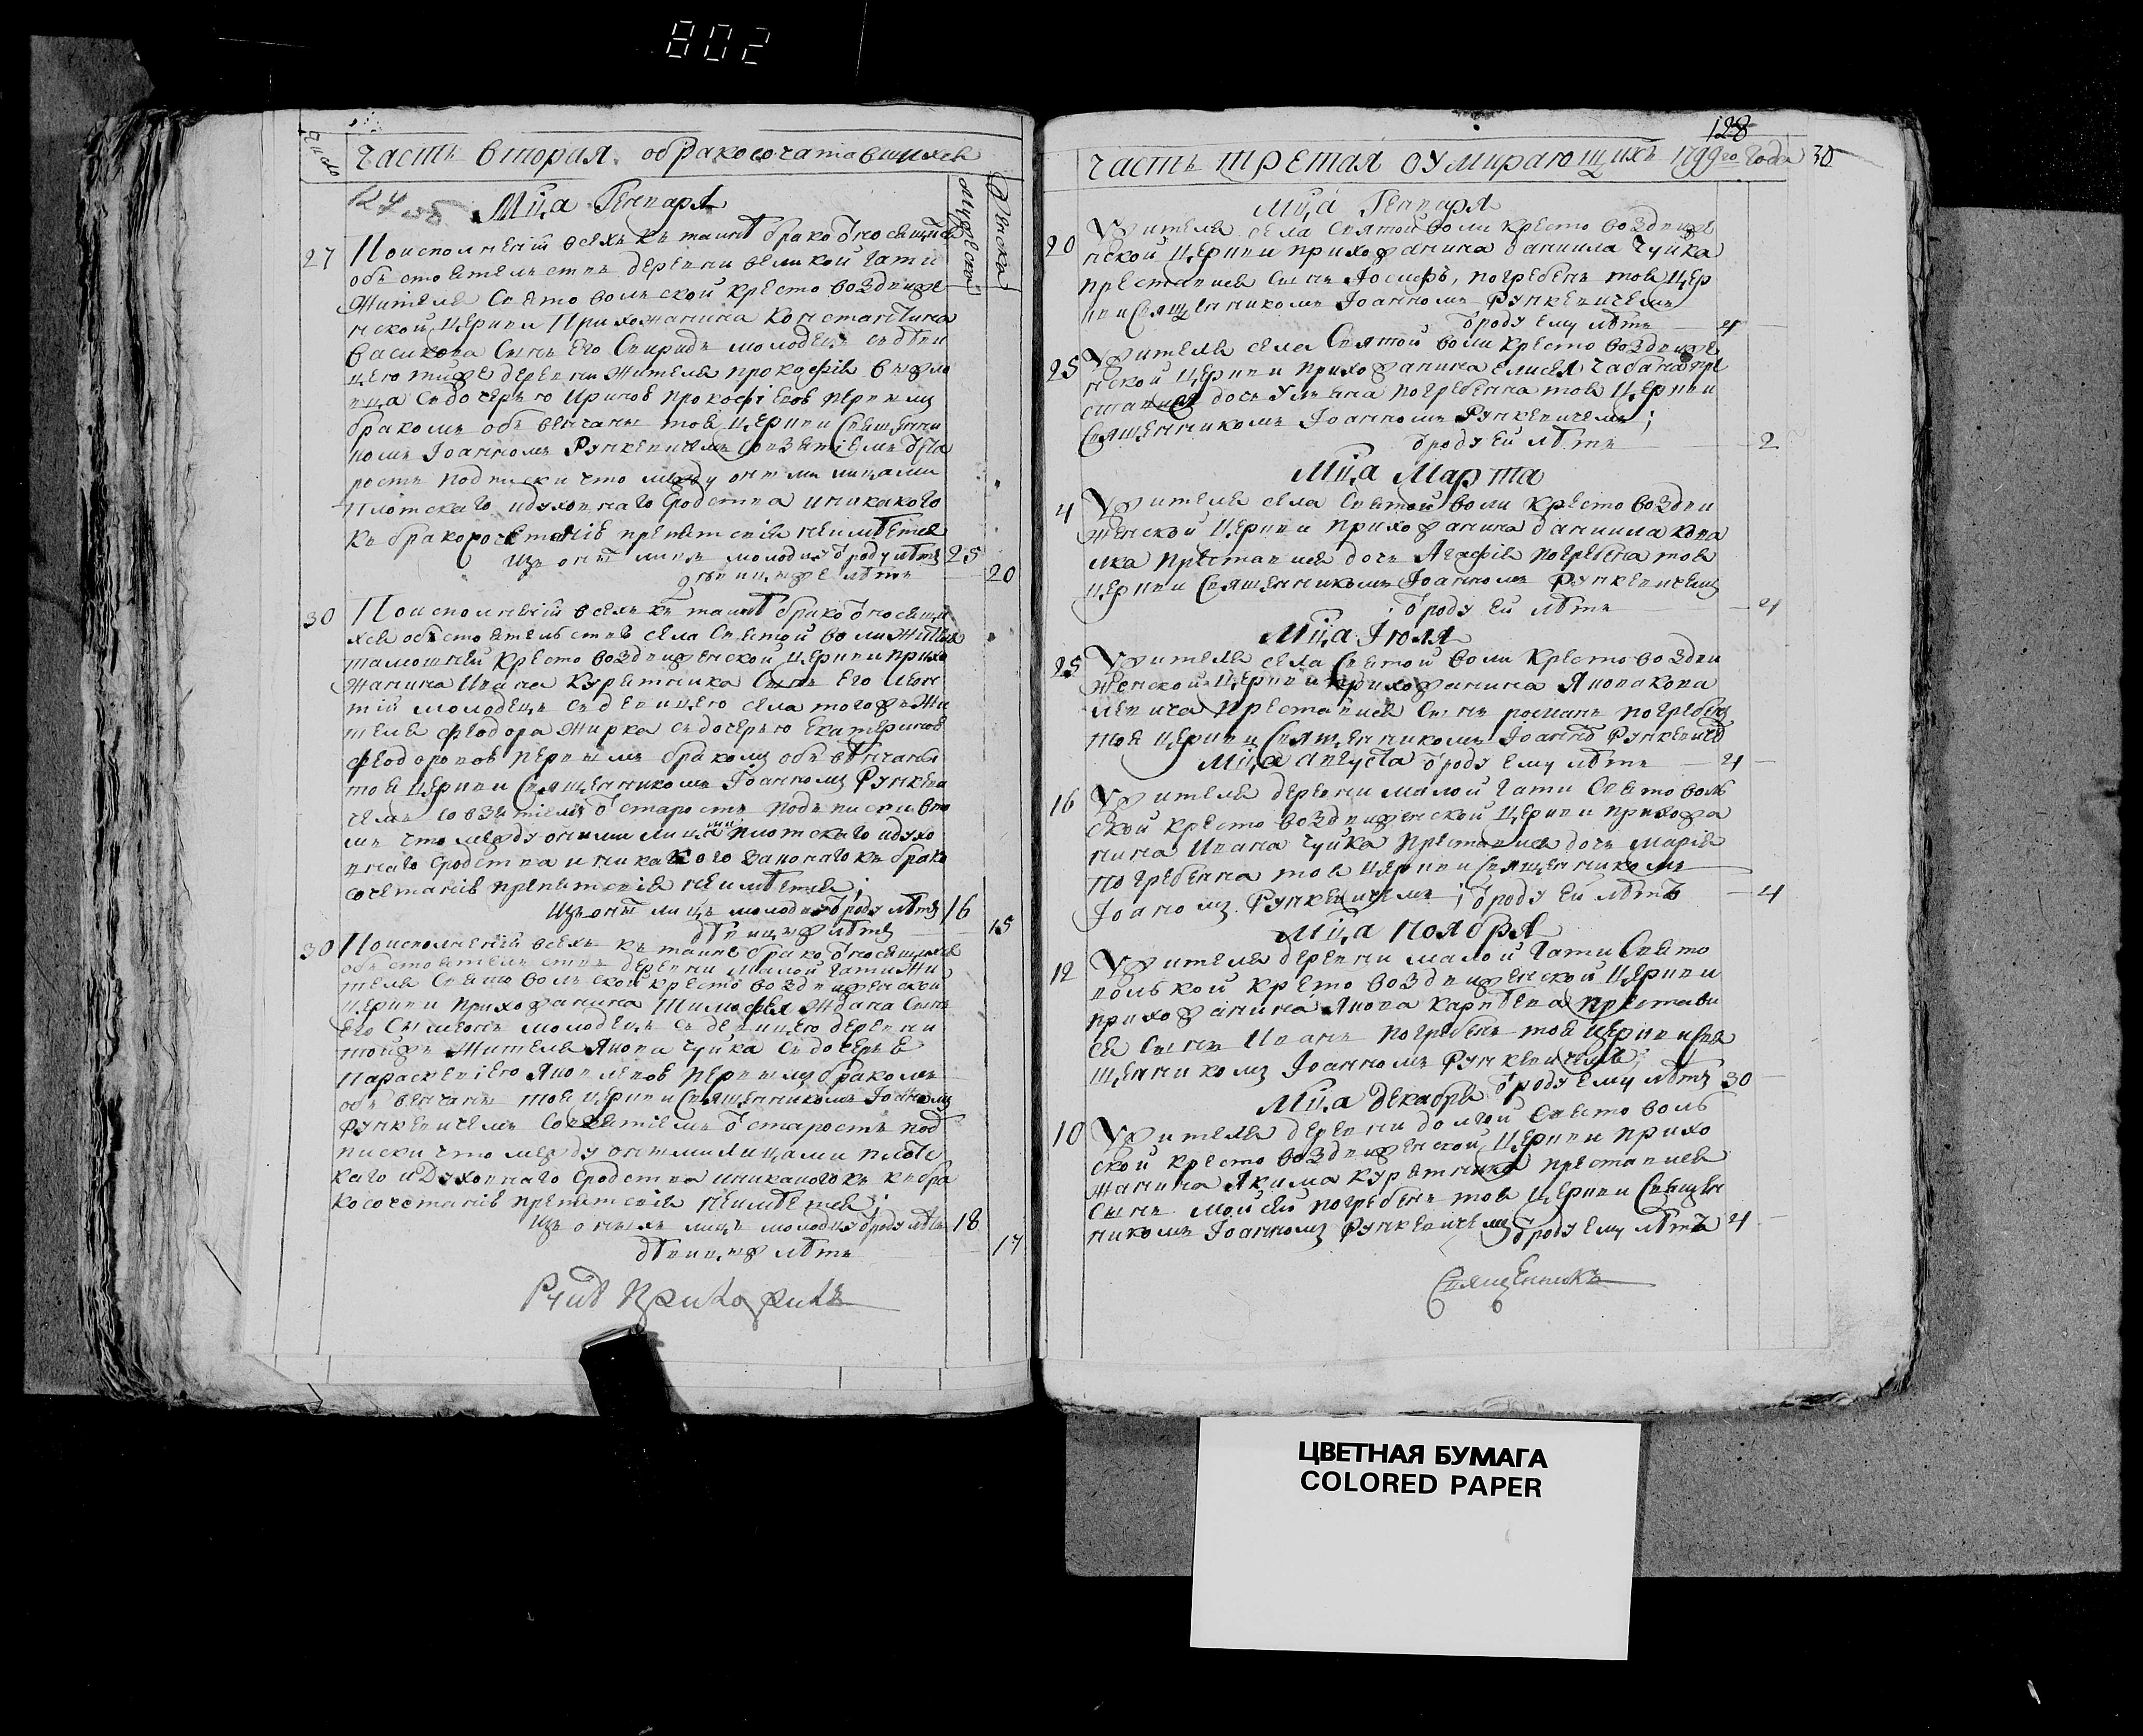 802
Число
часть вторая о бракосочатовшихся
Мца Генваря
Мужеска
Женска
27
По исполнений всехъ къ таинѣ брака ѿносящихся
обстоятелствъ деревни великой Гати
жителя Святоволской кресто воздвиже
нской церкви прихожанина Констанстина
сынъ его Спиридъ молодецъ съ дѣви
цею тиже деревни жителя прокофія
съ дочерью Ириною прокофіевою первымъ
бракомъ обвенчаны тоя церкви священни
комъ Іоанномъ Рункевичемъ со взятіемъ ѿ ста
ростъ подписки что между онѣми лицами
плотскаго и духовнаго сродства и никакого
къ бракосочетанію препятствія неимѣется
изъ онѣ лицъ молодцу ѿроду лѣтъ 25
девицѣже лѣтъ 20
30
По исполнений всехъ къ таинѣ брака ѿносящи
хся обстоятельствъ села Святой воли жителя
тамошней кресто воздвиженской церкви прихо
жанина Ивана Куратника сынъ его Леон
тій молодецъ съ девицею села тогожъ жи
теля феодора Жирка съ дочерью Екатериною
феодоровою первымъ бракомъ обвѣнчаны
тоя церкви священникомъ Іоанномъ Рункеви
чемъ со взятіемъ ѿ старостъ подписки въ то
мъ что между оними лицами плотскаго и духо
внаго сродства и никакого законаго къ брако
сочетанію препятствія неимѣется;
изъ онѣ лицъ молодцу ѿроду лѣтъ 16
дѣвицѣж лѣтъ 15
30
По исполнений всехъ къ таинѣ брака ѿносящихся
обстоятелствъ деревни малой Гати жи
теля Святоволской кресто воздвиженской
церкви прихожанина Тимофея Ждана сынъ
его Сымеонъ молодецъ съ девицею деревни
тойжъ жителя Якова Чуйка съ дочерью
Параскевіею Яковлевою первымъ бракомъ
обвенчаны тоя церкви священникомъ Іоаномъ
Рункевичемъ со взятіемъ ѿ старостъ под
писки что между онѣми лицами плотс
каго и духовнаго сродства и никакого къ бра
косочетанію препятствія неимѣется;
изъ онихъ лицъ молодцу ѿроду лѣтъ 18
дѣвицѣж лѣтъ 17
128
часть третая о умирающихъ 1799го года 30
Мца Генваря
20
Жителя села Святой воли кресто воздвиже
нской церкви прихожанина Даниила Чуйка
преставися сынъ Іосифъ, погребенъ тоя цер
кви священникомъ Іоанномъ Рункевичемъ
ѿроду ему лѣтъ 4
25
Жителя села Святой воли кресто воздвиже
нской церкви прихожанина Елисея Чабана пре
ставися дочь Уляна погребенна тоя церкви
священникомъ Іоанномъ Рункевичемъ;
ѿроду ей лѣтъ 2
Мца Марта
4
Жителя села Святой воли кресто воздви
женской церкви прихожанина Даниила Кова
лка преставися дочь Агафія погребена тоя
церкви священникомъ Іоанномъ Рункевичемъ
ѿроду ей лѣтъ 4
Мца Іюля
25
Жителя села Святой воли кресто воздви
женской церкви прихожанина Якова Кова
левича преставися сынъ романъ погребенъ
тоя церкви священникомъ Іоанно Рункевиче
Мца Августа ѿроду ему лѣтъ 4
16
Жителя деревни малой Гати Святоволь
ской кресто воздвиженской церкви прихожа
нина Ивана Чуйка преставися дочь Марія
погребенна тоя церкви священникомъ
Іоаномъ Рункевичемъ; ѿроду ей лѣтъ 4
Мца Ноября
12
Жителя деревни малой Гати Свято
волькой кресто воздвиженской церкви
прихожанина Якова Каравева престави
ся сынъ Иванъ погребенъ тоя церкви свя
щенникомъ Іоанномъ Рункевичемъ;
Мца декабря ѿроду ему лѣтъ 30
10
Жителя деревни долгой Святоволь
ской кресто воздвиженской церкви прихо
жанина Якима Куратника преставися
сынъ Мойсей погребенъ тоя церкви священ
никомъ Іоанномъ Рункевичемъ ѿроду ему лѣтъ 4
Священникъ
ЦВЕТНАЯ БУМАГА
COLORED PAPER